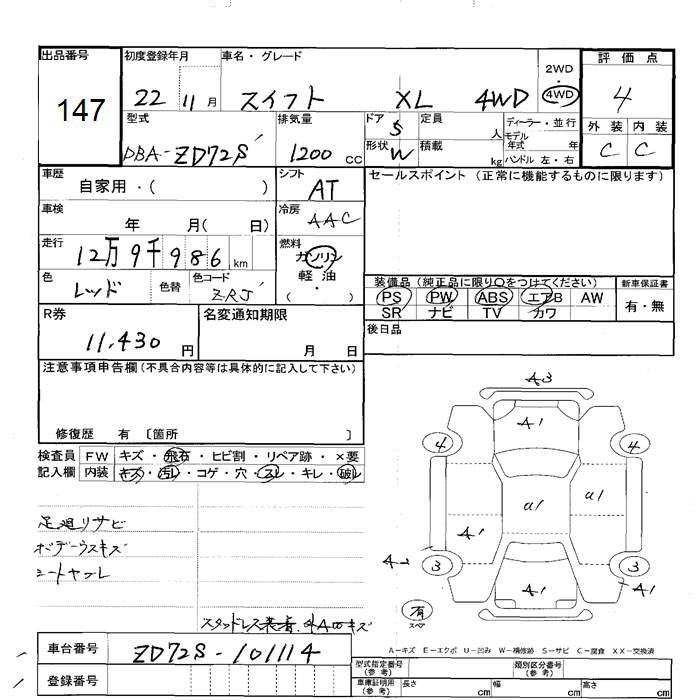 出品番号 初度登録年月 車名・グレード 2WD・4WD 評価点
147 22 11月 スイフト XL 4WD 4
型式 排気量 ドア 5 定員 人 ディーラー・並行 外装 内装
DBA-ZD72S 1200 CC 形状 W 積載 kg モデル年式 年 ハンドル 左・右 C C
車歴 自家用・( ) シフト AT セールスポイント (正常に機能するものに限ります)
車検 年 月( 日) 冷房 AAC
走行 12万9千986km 燃料 ガソリン 軽・油 ( ・ )
色 レッド 色替 色コード ZRJ
装備品(純正品に限り○をつけてください) 新車保証書
PS PW ABS エアB AW 有・無
SR ナビ TV カワ
R券 11,430円 名変通知期限 月 日
後日品
注意事項申告欄(不具合内容等は具体的に記入して下さい)
修復歴 有 〔箇所 〕
検査員 FW キズ・飛石・ヒビ割・リペア跡・×要
記入欄 内装 キズ・汚レ・コゲ・穴・スレ・キレ・破レ
A3
A1
4 4
U1 A1
A1
A2 3 3
A1 A1
足廻リサビ
ボデーウスキズ
シートヤブレ
スタッドレス装着 4AWキズ
有 スペア
A-キズ E-エクボ U-凹み W-補修跡 S-サビ C-腐食 XX-交換済
車台番号 ZD72S-101114
登録番号
型式指定番号(参考) 類別区分番号(参考)
車庫証明用(参考) 長さ cm 幅 cm 高さ cm